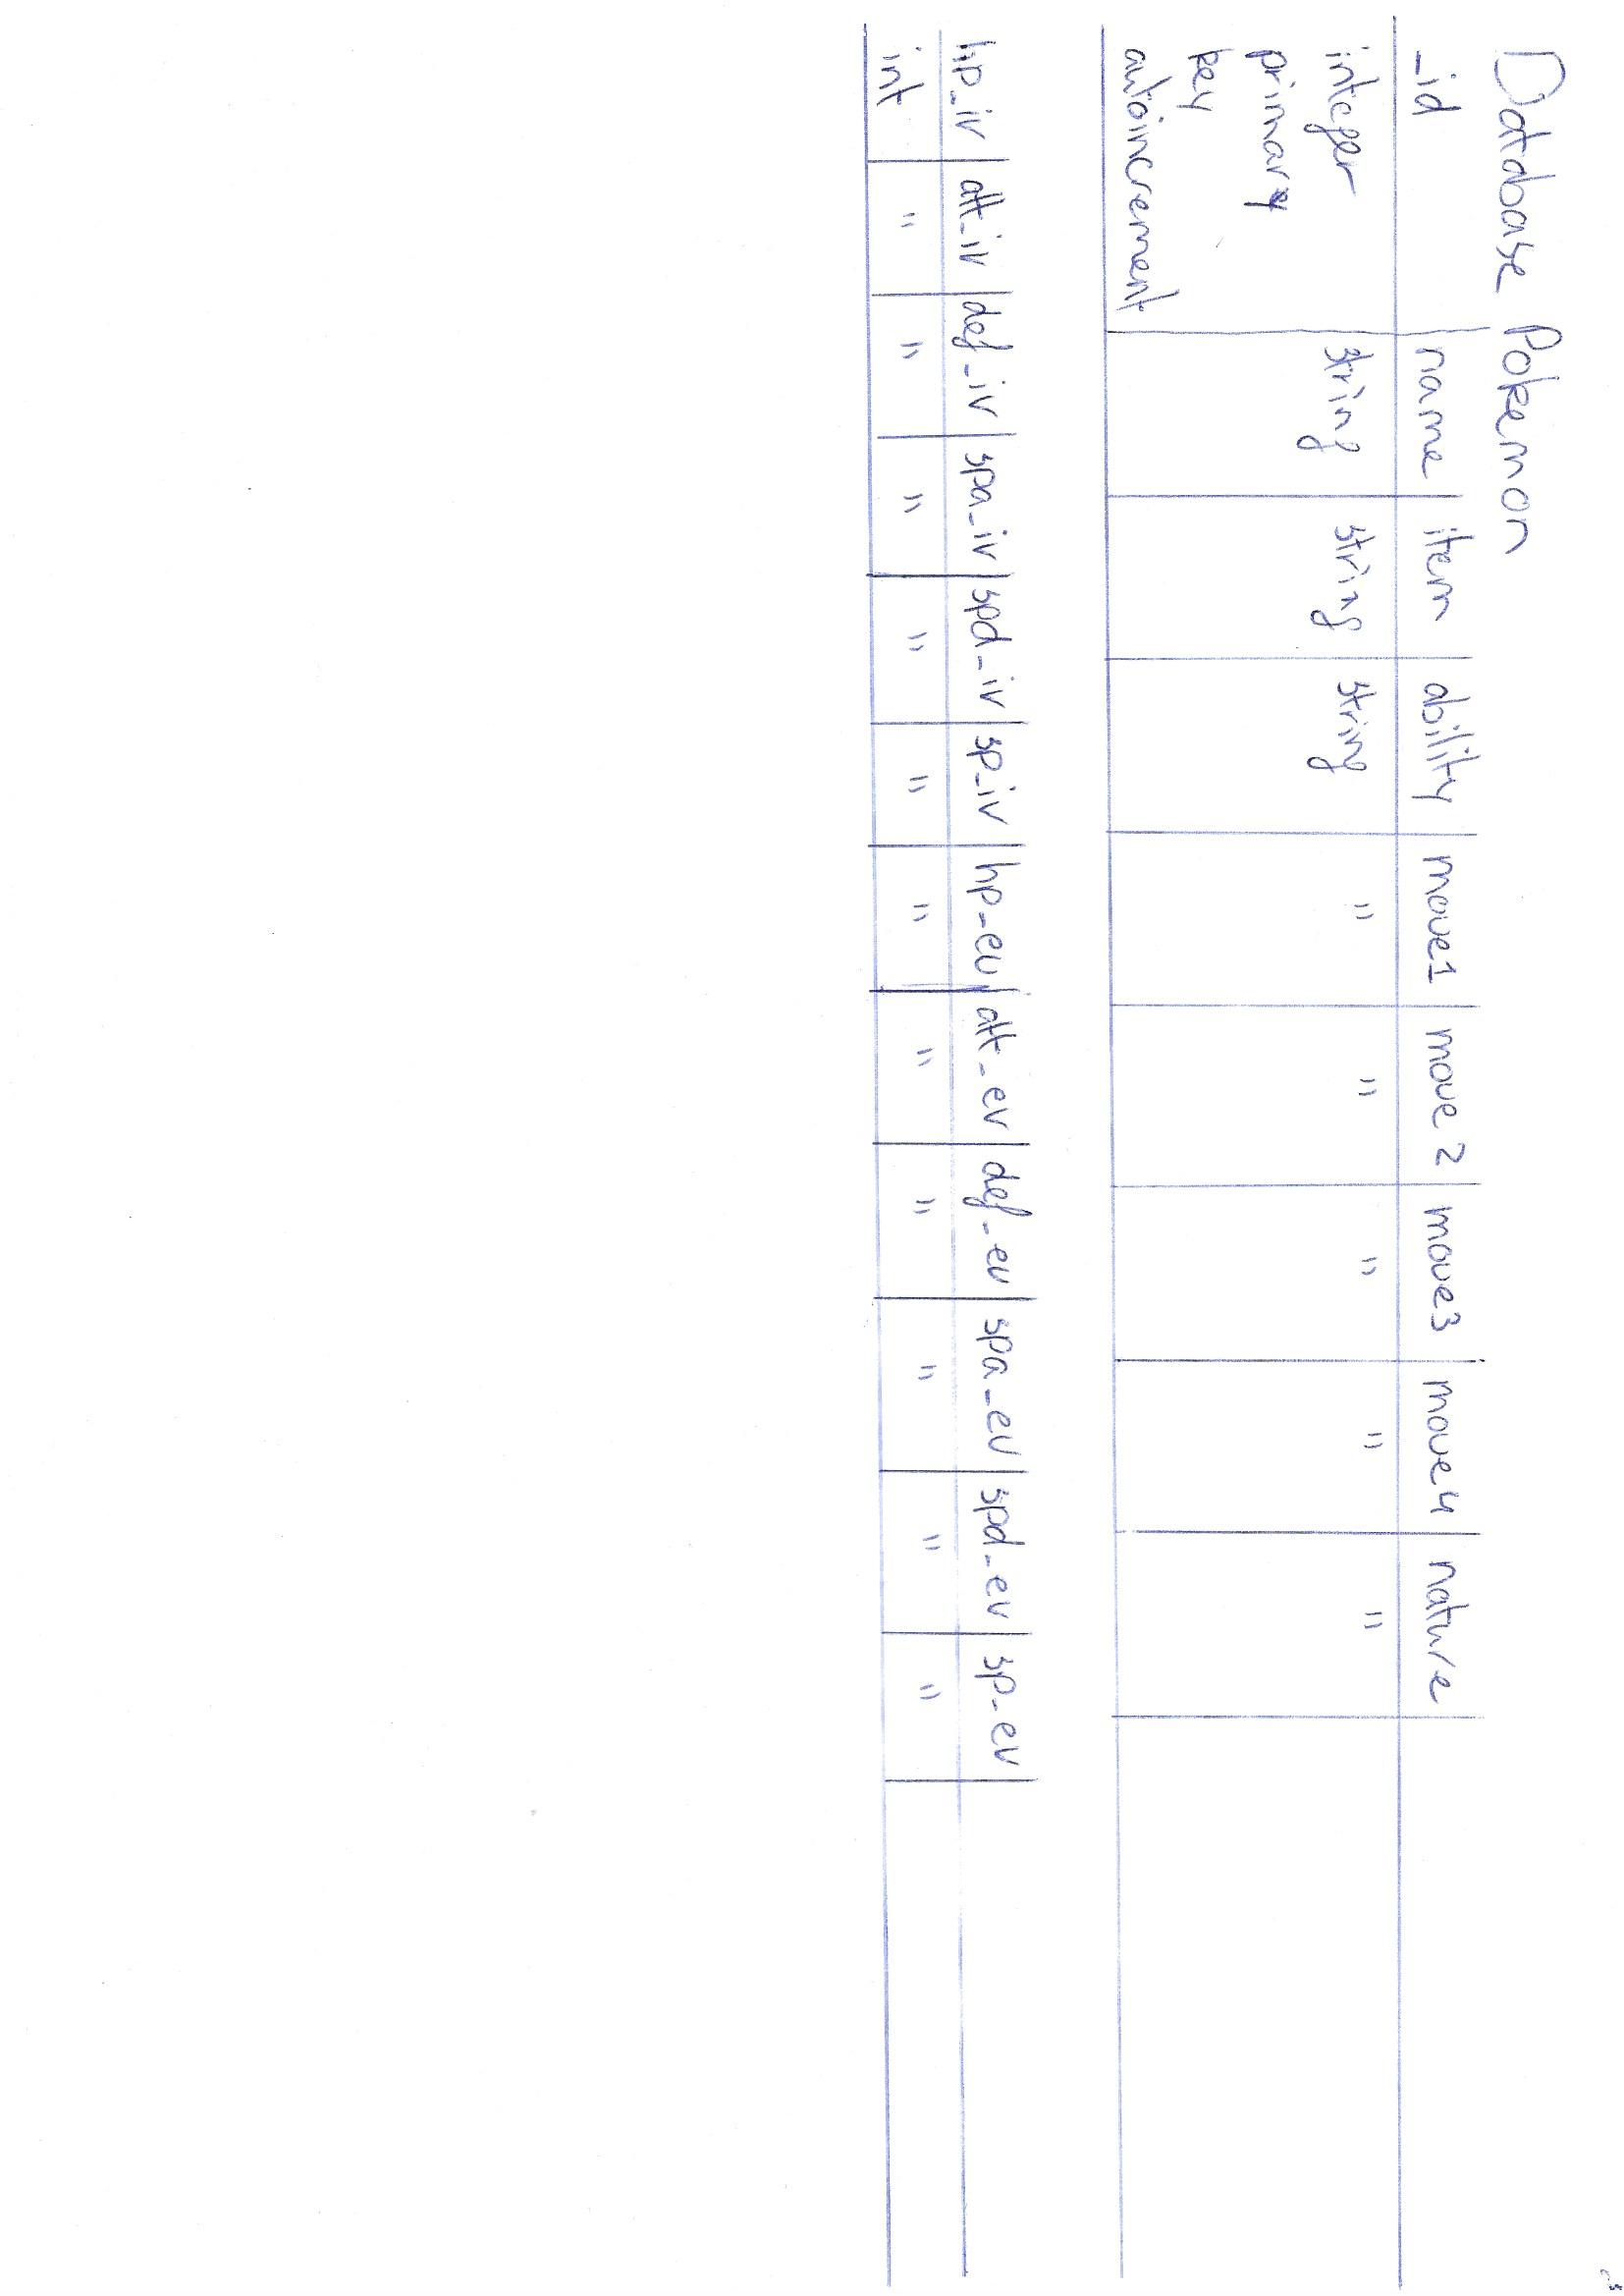 Database Pokemon
_id name item ability move1 move 2 move3 move4 nature
integer string string string " " " " "
primary
key
autoincrement
hp_iv att_iv def_iv spa_iv spd_iv sp_iv hp_ev att_ev def_ev spa_ev spd_ev sp_ev
int " " " " " " " " " " "